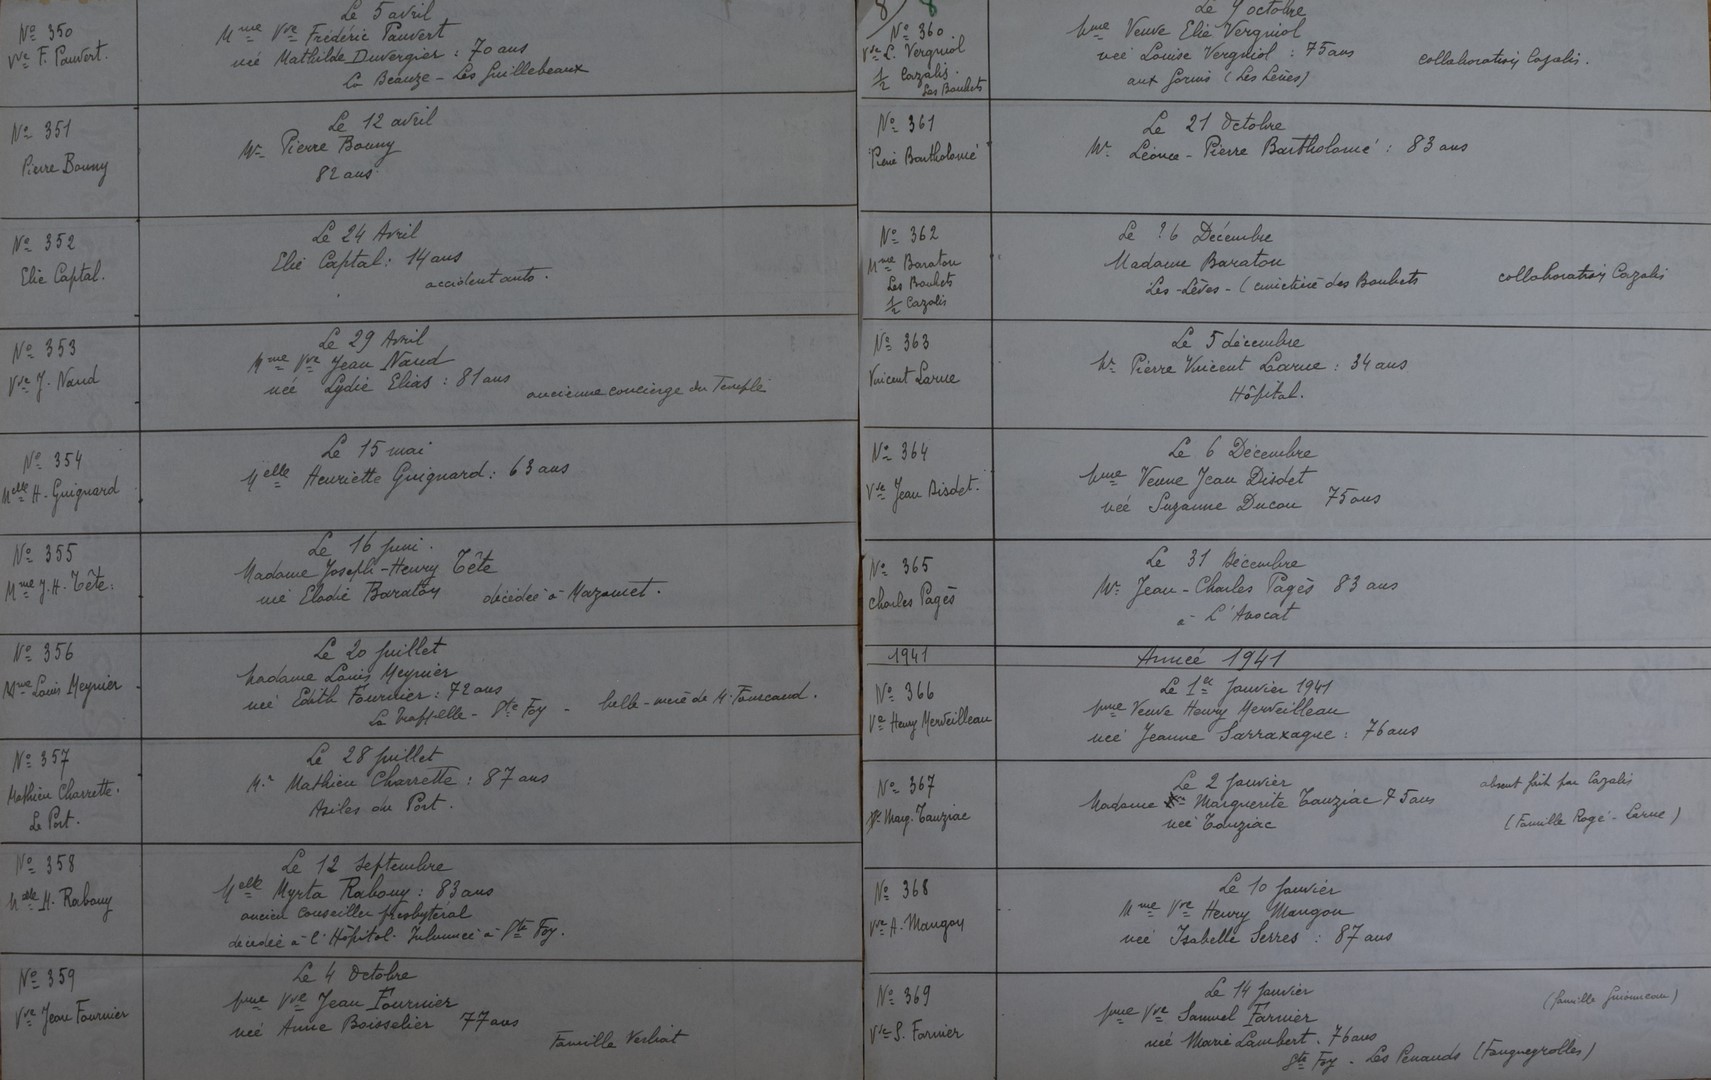 Nº 350
Vve F. Pauvert.
Le 5 avril
Mme Vve Frédéric Pauvert
née Mathilde Duvergier : 70 ans
La Beauze - Les Guillebeaux
Nº 351
Pierre Bouny
Le 12 avril
Mr Pierre Bouny
82 ans
Nº 352
Elie Captal.
Le 24 Avril
Elie Captal : 14 ans
accident auto.
Nº 353
Vve J. Naud
Le 29 Avril
Mme Vve Jean Naud
née Lydie Elias : 81 ans
ancienne concierge du Temple
Nº 354
Melle H. Guignard
Le 15 mai
Melle Henriette Guignard : 63 ans
Nº 355
Mme J.H. Tête.
Le 16 juin.
Madame Joseph-Henry Tête
née Elodie Baraton
décédée à Mazamet.
Nº 356
Mme Louis Meynier
Le 20 juillet
Madame Louis Meynier
née Edith Fournier : 72 ans
La - Ste Foy - belle-mère de M. Fourcaud.
Nº 357
Mathieu Charrette.
Le Port.
Le 28 juillet
Mr Mathieu Charrette : 87 ans
Asiles du Port.
Nº 358
Melle M. Rabouy
Le 12 Septembre
Melle Myrta Rabouy : 83 ans
ancien conseiller presbytéral
décédée à l'Hôpital - Inhumée à Ste Foy.
Nº 359
Vve Jean Fournier
Le 4 Octobre
Mme Vve Jean Fournier
née Anne Boisselier 77 ans
Famille
8/ 8
Nº 360
Vve L. Vergniol
1/2 Cazalis.
Les Bouhets
Le octobre
Mme Veuve Elie Vergniol
née Louise Vergniol : 75 ans
aux (Les Lèves)
collaboration Cazalis.
Nº 361
Pierre Bartholomé
Le 21 Octobre
Mr Léonce - Pierre Bartholomé : 83 ans
Nº 362
Mme Baraton
Les Bouhets
1/2 Cazalis
Le ?6 Décembre
Madame Baraton
Les-Lèves - (cimetière des Bouhets
collaboration Cazalis
Nº 363
Vincent Larue
Le 5 décembre
Mr Pierre Vincent Larue : 34 ans
Hôpital.
Nº 364
Vve Jean Disdet.
Le 6 Décembre
Mme Veuve Jean Disdet
née Suzanne Ducou 75 ans
Nº 365
Charles Pagès
Le 31 Décembre
Mr Jean-Charles Pagès 83 ans
à L'Avocat
1941
Année 1941
Nº 366
Ve Henry Merveilleau
Le 1er Janvier 1941
Mme Veuve Henry Merveilleau
née Jeanne Sarraxague : 76 ans
Nº 367
Marg. Tauziac
Le 2 Janvier
Madame Marguerite Tauziac 75 ans
née Tauziac
absent fait par Cazalis
(Famille Rogé - Larue)
Nº 368
Vve A. Mangon
Le 10 Janvier
Mme Vve Henry Mangon
née Isabelle Serres : 87 ans
Nº 369
Vve S. Farnier
Le 14 Janvier
Mme Vve Samuel Farnier
née Marie Lambert. 76 ans
Ste Foy - Les Penauds (Fougueyrolles)
(famille Guionneau)